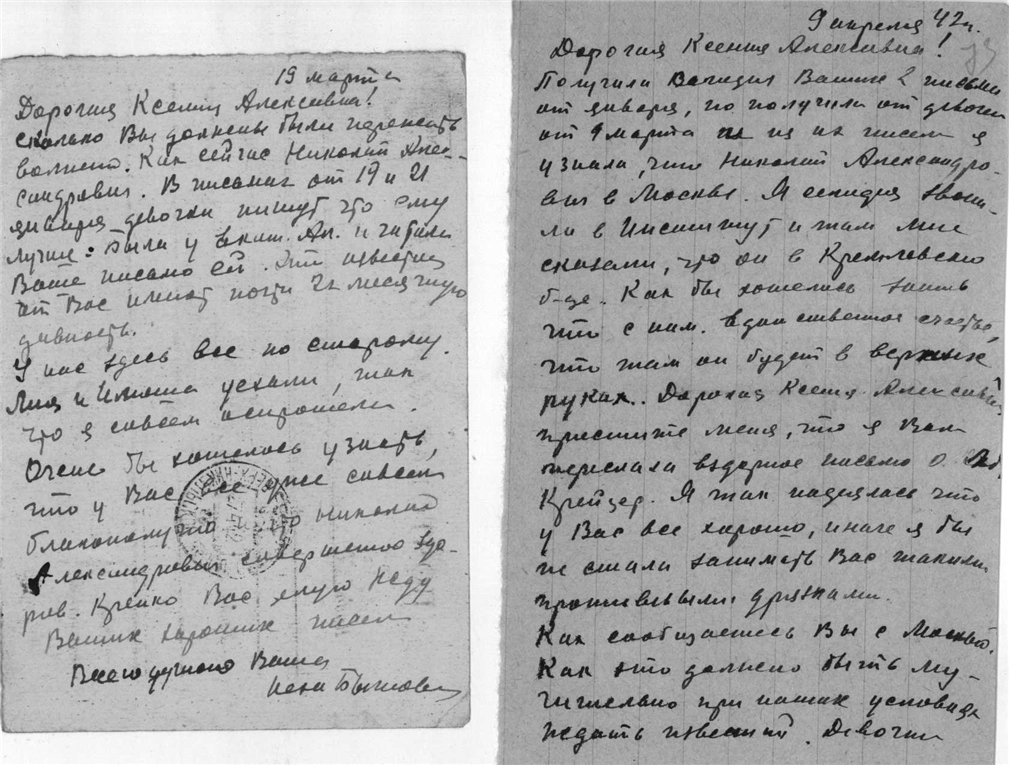 19 марта
Дорогая Ксения Алексевна!
сколько Вы должны были пережить
волнений. Как сейчас Николай Алек-
сандрович. В письмах от 19 и 21
января девочки пишут что ему
лучше: были у и читали
Ваше письмо ей. Эти известия
от Вас имеют почти 2х месячную
давность.
У нас здесь все по старому.
Лия и уехали, так
что я совсем осиротела.
Очень бы хотелось узнать,
что у Вас все уже совсем
благополучно Николай
Александрович совершенно здо-
ров. Крепко Вас целую жду
Ваших хороших писем
Всего лучшего Ваша
9 апреля 42 г.
Дорогая Ксения Алексевна!
Получила Ваших 2 письма
от января, но получила от девочек
от 9 марта из их писем я
узнала, что Николай Александро-
вич в Москве. Я сегодня звони-
ла в Институт и там мне
сказали, что он в Кремлевской
б-це. Как бы хотелось знать
что с ним. единственное счастье,
что там он будет в верных
руках. Дорогая Ксения Алексевна,
простите меня, что я Вам
переслала вздорное письмо о
Крейцер. Я так надеялась что
у Вас все хорошо, иначе я бы
не стала занимать Вас такими
противными дрязгами.
Как сообщаетесь Вы с Москвой.
Как это должно быть му-
чительно при наших условиях
ждать известий. Девочки